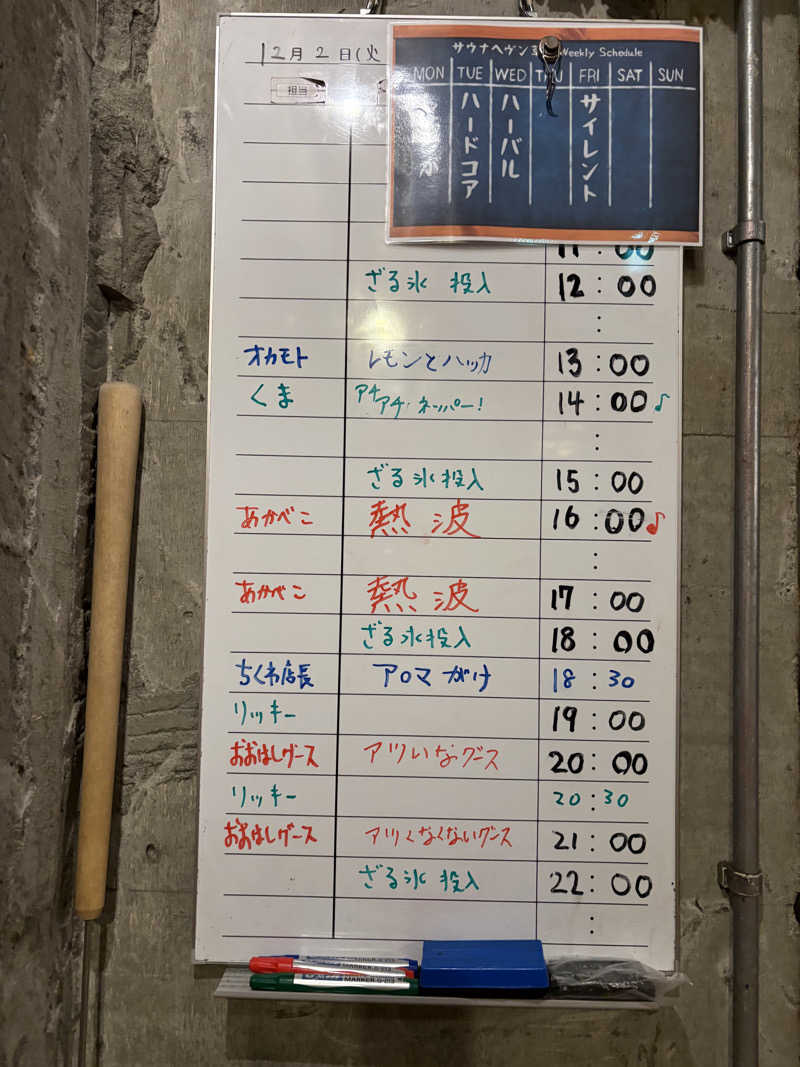 12月2日(火
担当
サウナヘヴン Weekly Schedule
MON TUE WED THU FRI SAT SUN
ハードコア
ハーバル
サイレント
11:00
ざる氷 投入 12:00
:
オカモト レモンとハッカ 13:00
くま アチアチ・ネッパー! 14:00♪
:
ざる氷投入 15:00
あかべこ 熱波 16:00♪
:
あかべこ 熱波 17:00
ざる氷投入 18:00
ちくわ店長 アロマがけ 18:30
リッキー 19:00
おおはしグース アツいなグース 20:00
リッキー 20:30
おおはしグース アツくなくないグース 21:00
ざる氷 投入 22:00
:
MARKER
MARKER